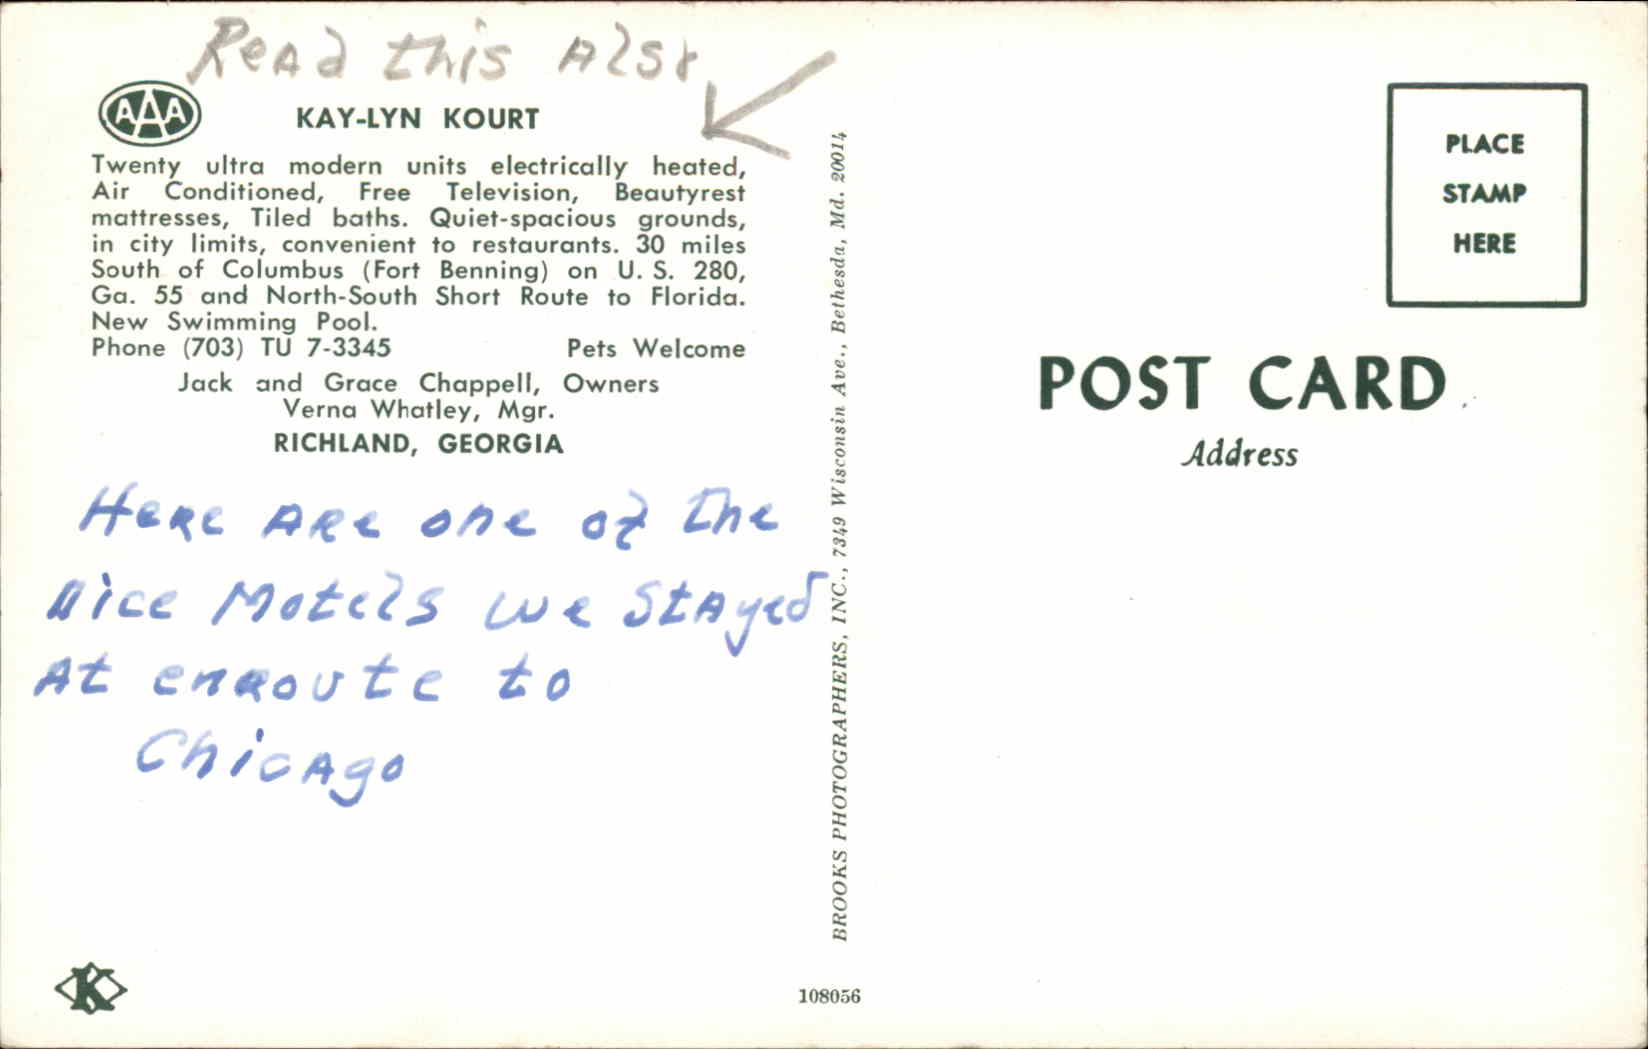 Read this Also
AAA
KAY-LYN KOURT
Twenty ultra modern units electrically heated,
Air Conditioned, Free Television, Beautyrest
mattresses, Tiled baths. Quiet-spacious grounds,
in city limits, convenient to restaurants. 30 miles
South of Columbus (Fort Benning) on U. S. 280,
Ga. 55 and North-South Short Route to Florida.
New Swimming Pool.
Phone (703) TU 7-3345 Pets Welcome
Jack and Grace Chappell, Owners
Verna Whatley, Mgr.
RICHLAND, GEORGIA
Here Are one of the
Nice Motels we Stayed
At enroute to
Chicago
K
BROOKS PHOTOGRAPHERS, INC., 7349 Wisconsin Ave., Bethesda, Md. 20014
108056
PLACE
STAMP
HERE
POST CARD
Address